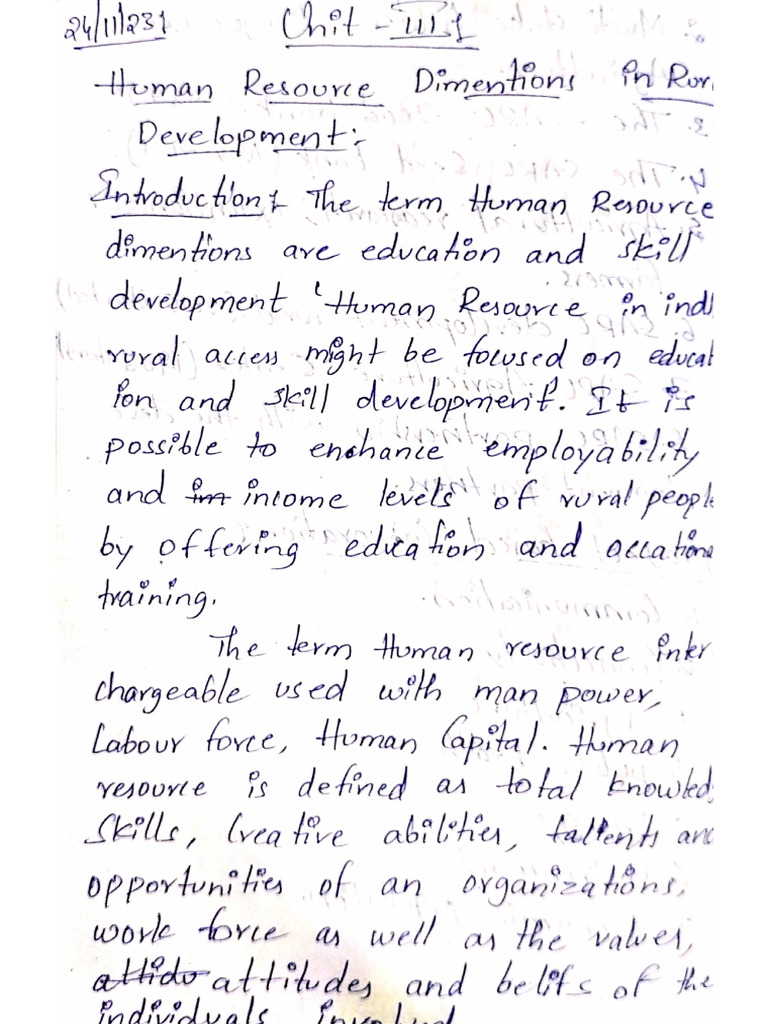 24/11/23
Unit - III
Human Resource Dimentions in Rur
Development:-
Introduction: The term Human Resource
dimentions are education and skill
development 'Human Resource in indi
rural access might be focused on educat
ion and skill development. It is
possible to enchance employability
and im income levels of rural people
by offering education and occationa
training.
The term Human resource inter
chargeable used with man power,
Labour force, Human Capital. Human
resource is defined as total knowled
skills, Creative abilities, tallents and
opportunities of an organizations,
work force as well as the values,
attido attitudes and belifs of the
individuals involved